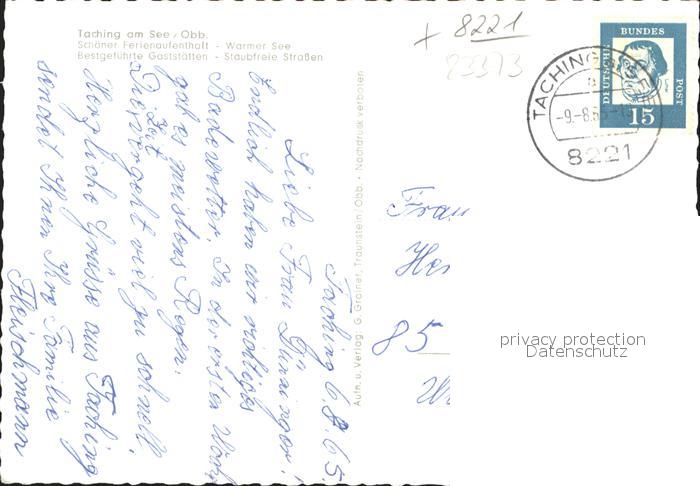 Taching am See / Obb.
Schöner Ferienaufenthalt - Warmer See
Bestgeführte Gaststätten - Staubfreie Straßen
+ 8221
83373
BUNDES
DEUTSCHE
POST
15
TACHING A. SEE
a
-9.-8.65-
8221
Taching 6.8.65.
Liebe Frau
Endlich haben wir richtiges
Badewetter. In der ersten Woche
gab es meistens Regen.
Die Zeit vergeht viel zu schnell.
Herzliche Grüsse aus Taching
sendet Ihnen Ihre Familie
Fleischmann
Aufn. u. Verlag: G. Grainer, Traunstein/Obb. - Nachdruck verboten
Frau
85
privacy protection
Datenschutz